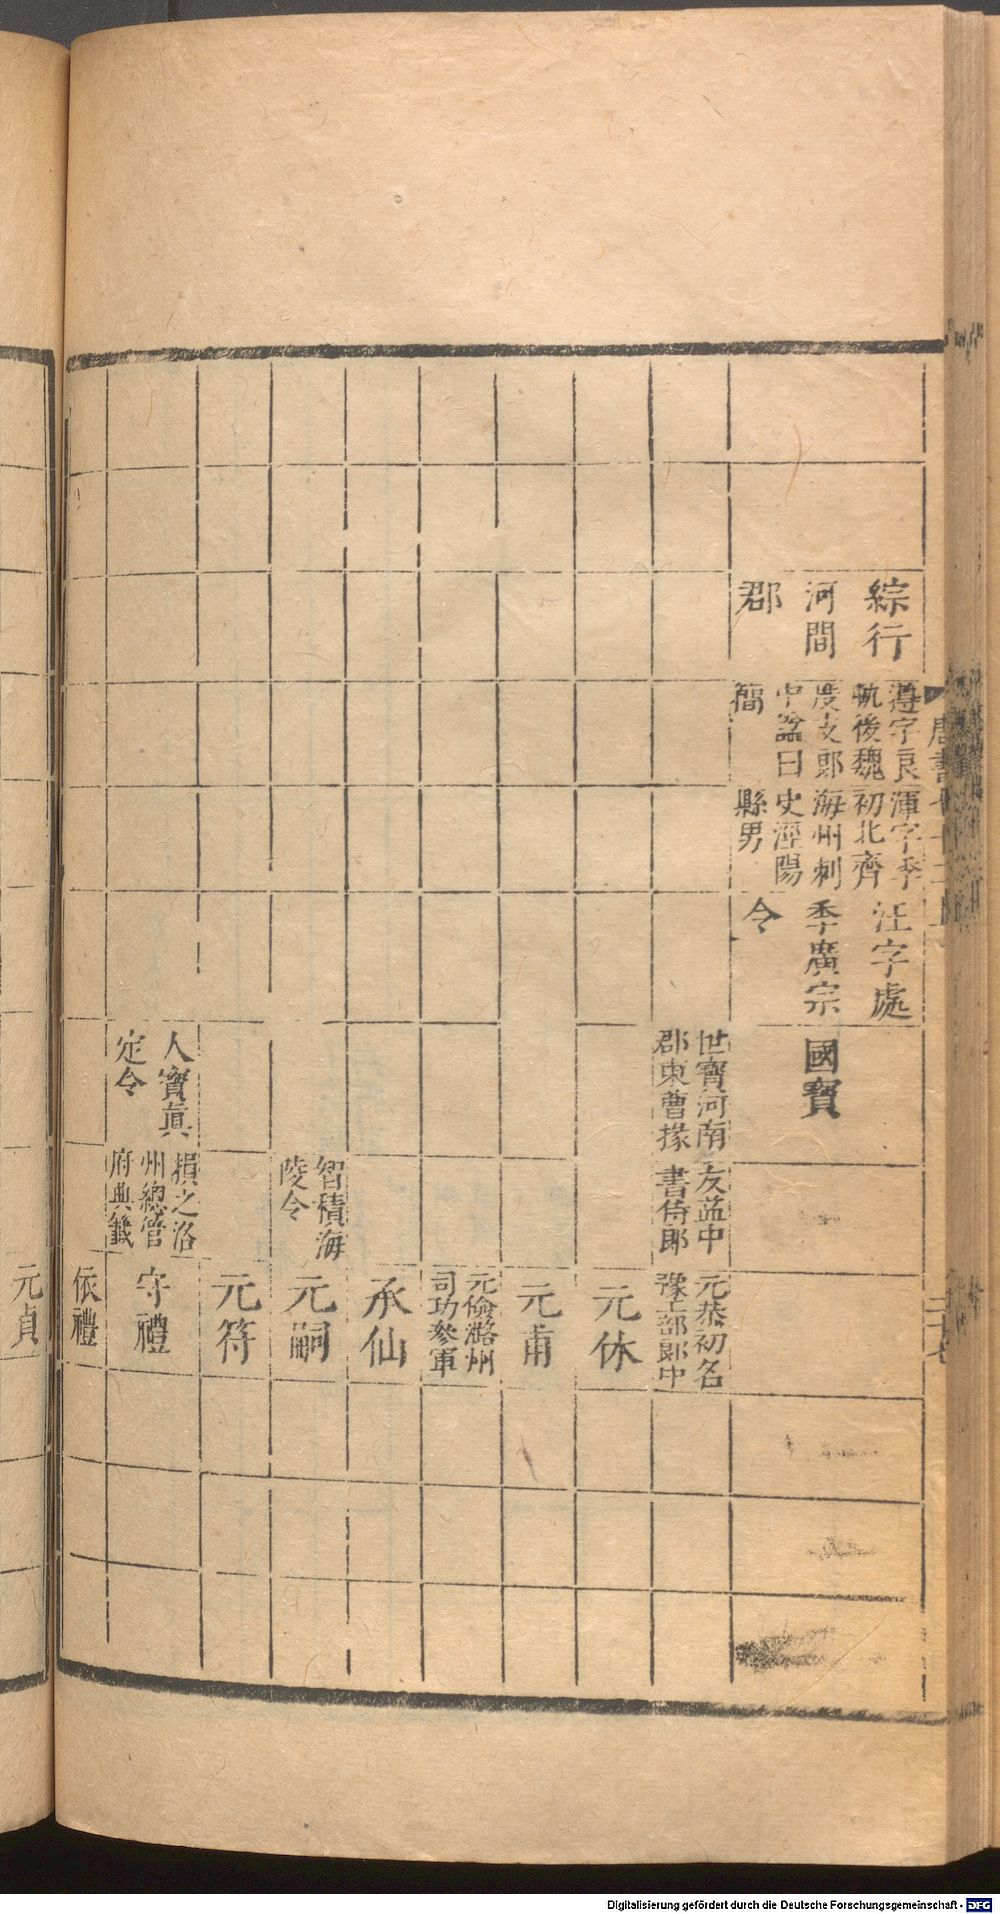 綜行
河間
郡
遵字良
軌後魏
度支郎
中諡曰
簡
渾字季
初北齊
海州刺
史涇陽
縣男
汪字處
季廣宗
令
國寶
世寶河南
郡東曹掾
友益中
書侍郎
元恭初名
豫工部郎中
元休
元甫
元儉潞州
司功參軍
承仙
智積海
陵令
元嗣
元符
人寶眞
定令
損之洺
州總管
府典籤
守禮
依禮
元貞
Digitalisierung gefördert durch die Deutsche Forschungsgemeinschaft - DFG